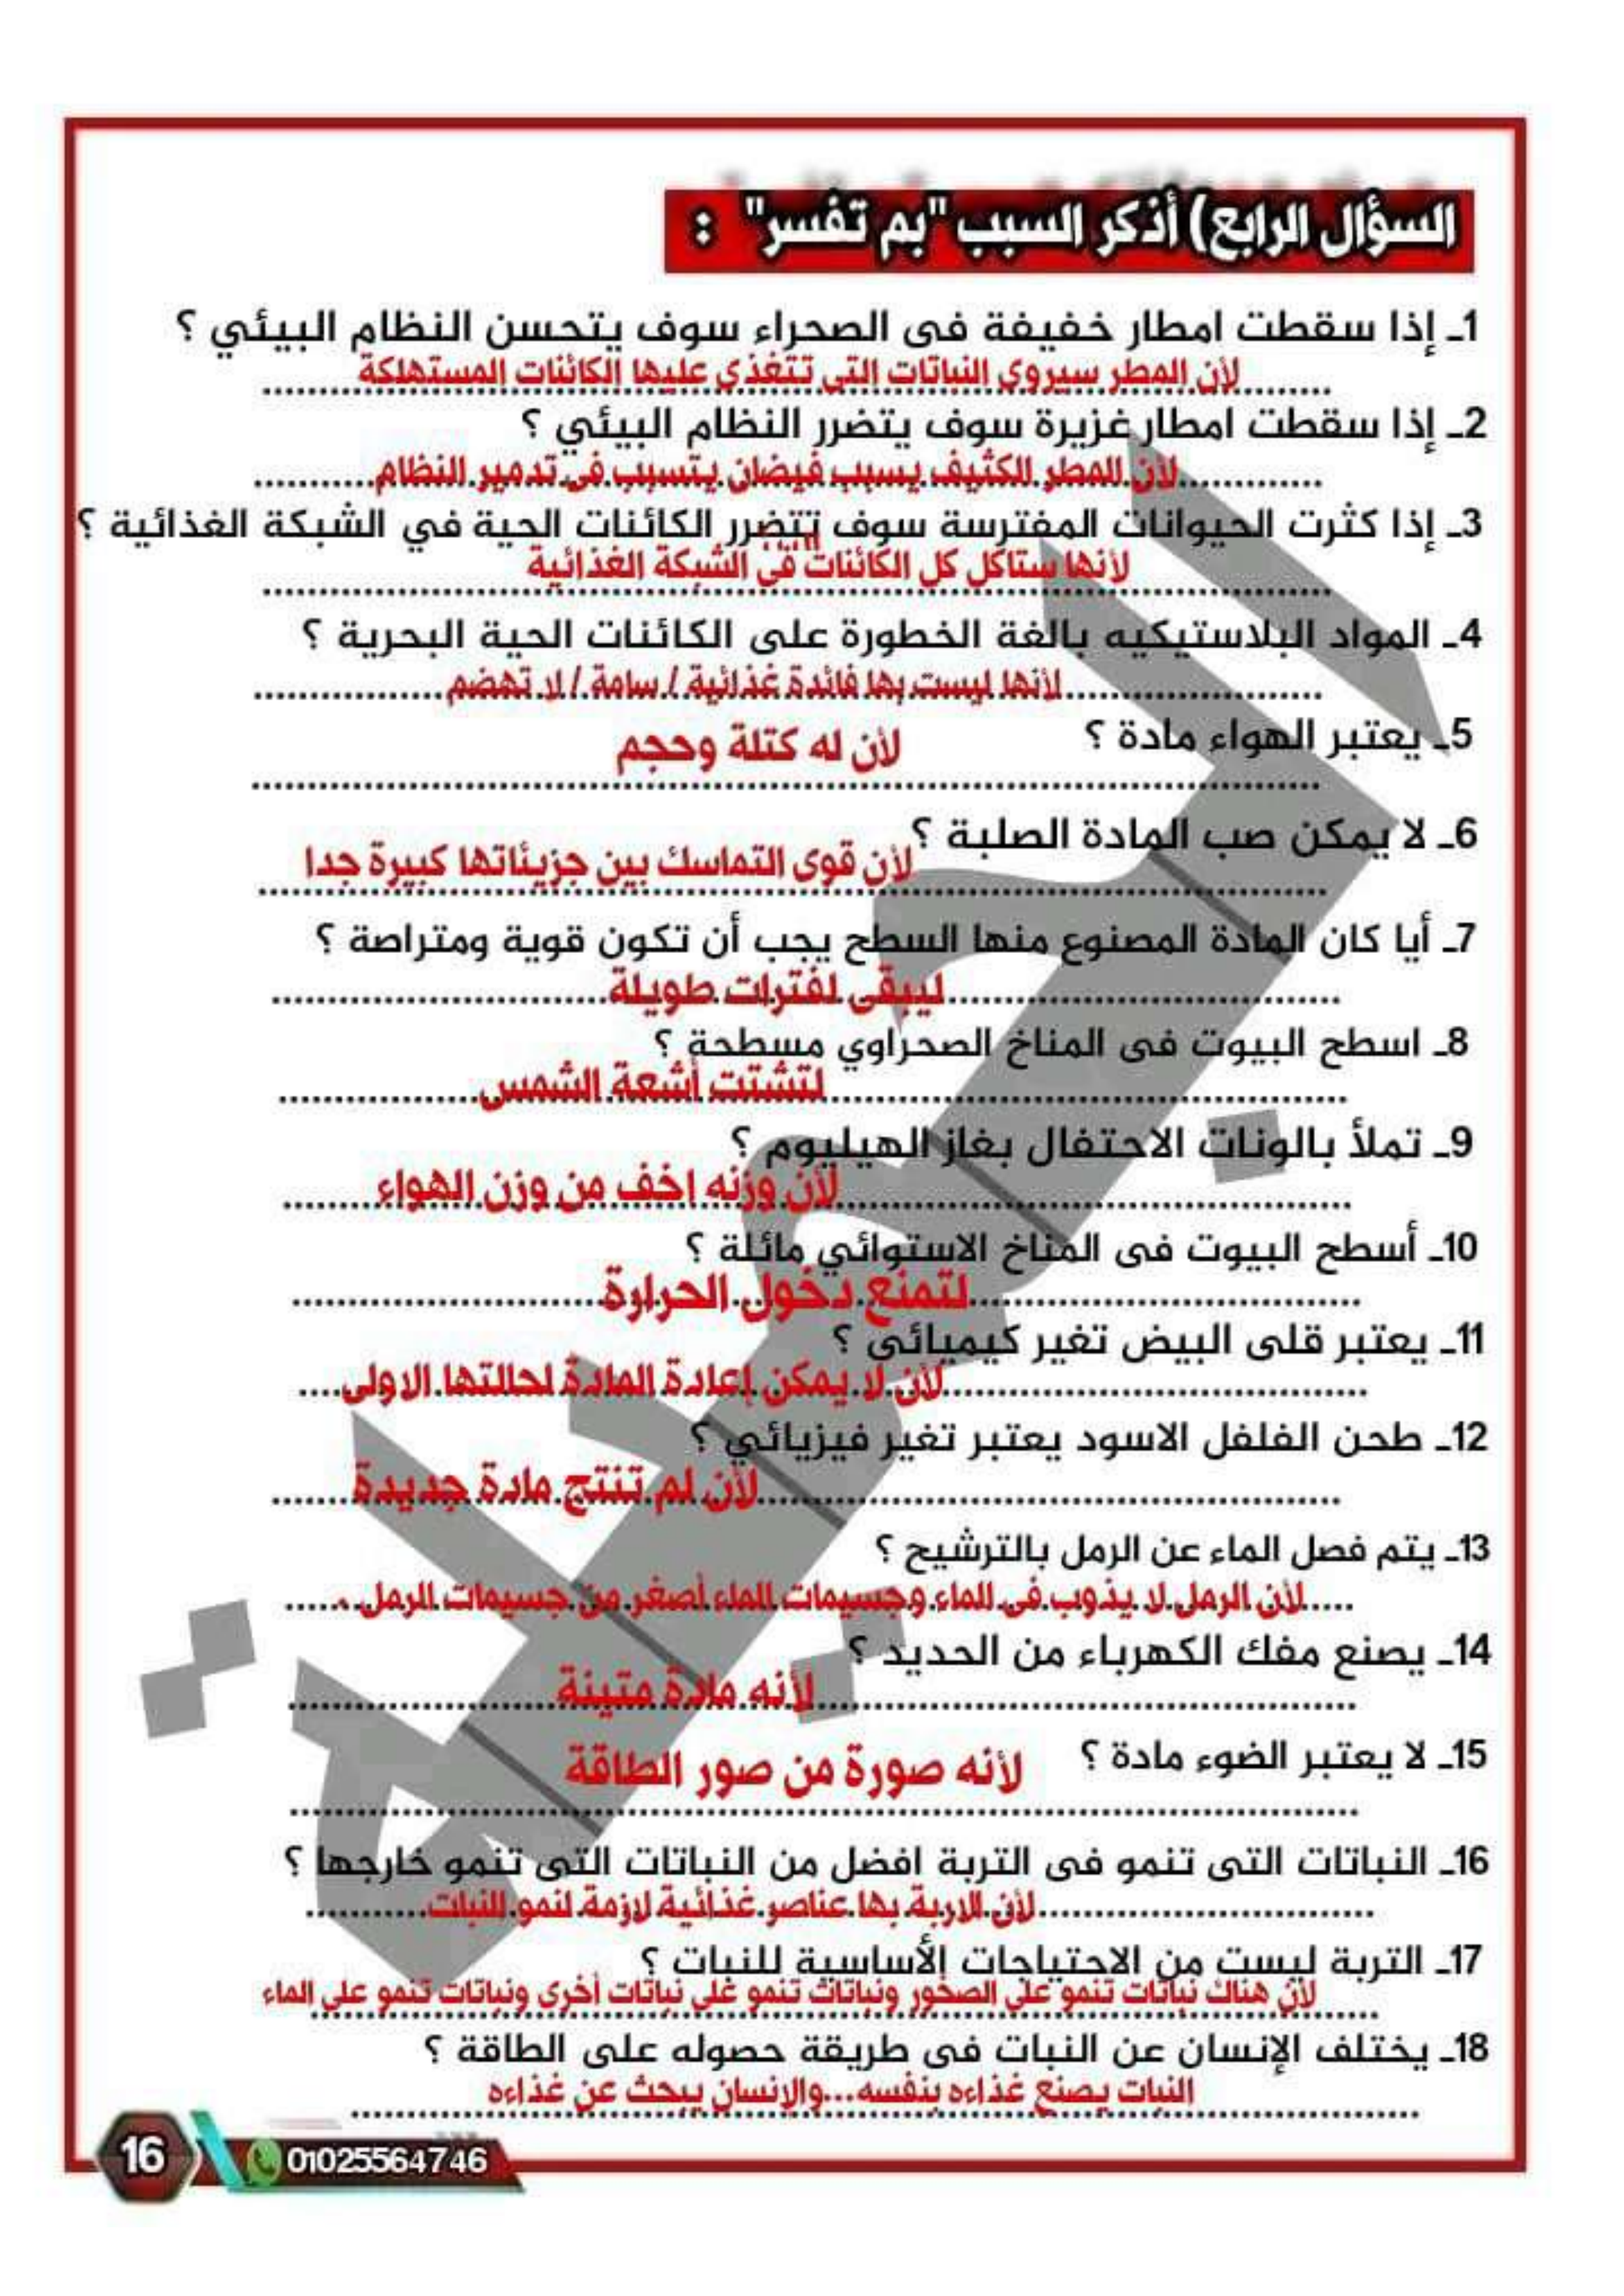 السؤال الرابع) أذكر السبب "بم تفسر" :
1ـ إذا سقطت امطار خفيفة فى الصحراء سوف يتحسن النظام البيئي ؟
لأن المطر سيروى النباتات التى تتغذى عليها الكائنات المستهلكة
2ـ إذا سقطت امطار غزيرة سوف يتضرر النظام البيئي ؟
لأن المطر الكثيف يسبب فيضان يتسبب فى تدمير النظام
3ـ إذا كثرت الحيوانات المفترسة سوف تتضرر الكائنات الحية في الشبكة الغذائية ؟
لأنها ستاكل كل الكائنات فى الشبكة الغذائية
4ـ المواد البلاستيكيه بالغة الخطورة على الكائنات الحية البحرية ؟
لأنها ليست بها فائدة غذائية / سامة / لا تهضم
5ـ يعتبر الهواء مادة ؟ لأن له كتلة وحجم
6ـ لا يمكن صب المادة الصلبة ؟ لأن قوى التماسك بين جزيئاتها كبيرة جدا
7ـ أيا كان المادة المصنوع منها السطح يجب أن تكون قوية ومتراصة ؟
ليبقى لفترات طويلة
8ـ اسطح البيوت فى المناخ الصحراوي مسطحة ؟
لتشتت أشعة الشمس
9ـ تملأ بالونات الاحتفال بغاز الهيليوم ؟
لأن وزنه اخف من وزن الهواء
10ـ أسطح البيوت فى المناخ الاستوائي مائلة ؟
لتمنع دخول الحرارة
11ـ يعتبر قلى البيض تغير كيميائى ؟
لأن لا يمكن إعادة المادة لحالتها الاولى
12ـ طحن الفلفل الاسود يعتبر تغير فيزيائي ؟
لأن لم تنتج مادة جديدة
13ـ يتم فصل الماء عن الرمل بالترشيح ؟
لأن الرمل لا يذوب فى الماء وجسيمات الماء أصغر من جسيمات الرمل
14ـ يصنع مفك الكهرباء من الحديد ؟
لأنه مادة متينة
15ـ لا يعتبر الضوء مادة ؟ لأنه صورة من صور الطاقة
16ـ النباتات التى تنمو فى التربة افضل من النباتات التى تنمو خارجها ؟
لأن الاربة بها عناصر غذائية لازمة لنمو النبات
17ـ التربة ليست من الاحتياجات الأساسية للنبات ؟
لأن هناك نباتات تنمو على الصخور ونباتات تنمو على نباتات أخرى ونباتات تنمو على الماء
18ـ يختلف الإنسان عن النبات فى طريقة حصوله على الطاقة ؟
النبات يصنع غذاءه بنفسه...والإنسان يبحث عن غذاءه
16
01025564746